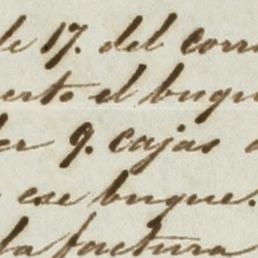 de 17. del corr
erto el buqu
der 9. cajas
ese buque.
la factura